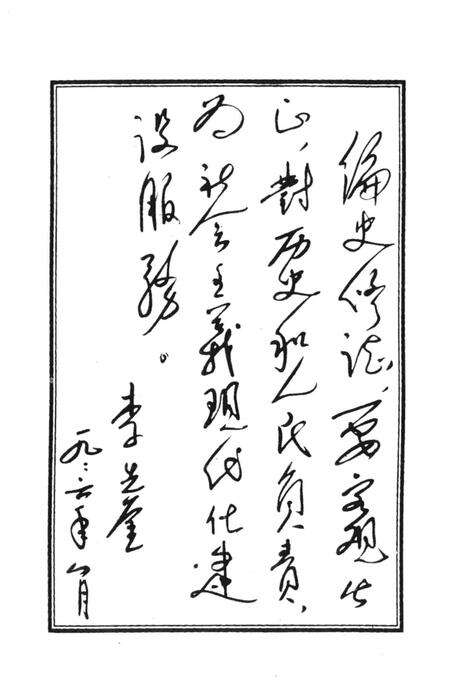 编史修志,要客观公
正,對历史和人民负责,
为社会主義現代化建
设服務。
李
一九八六年八月